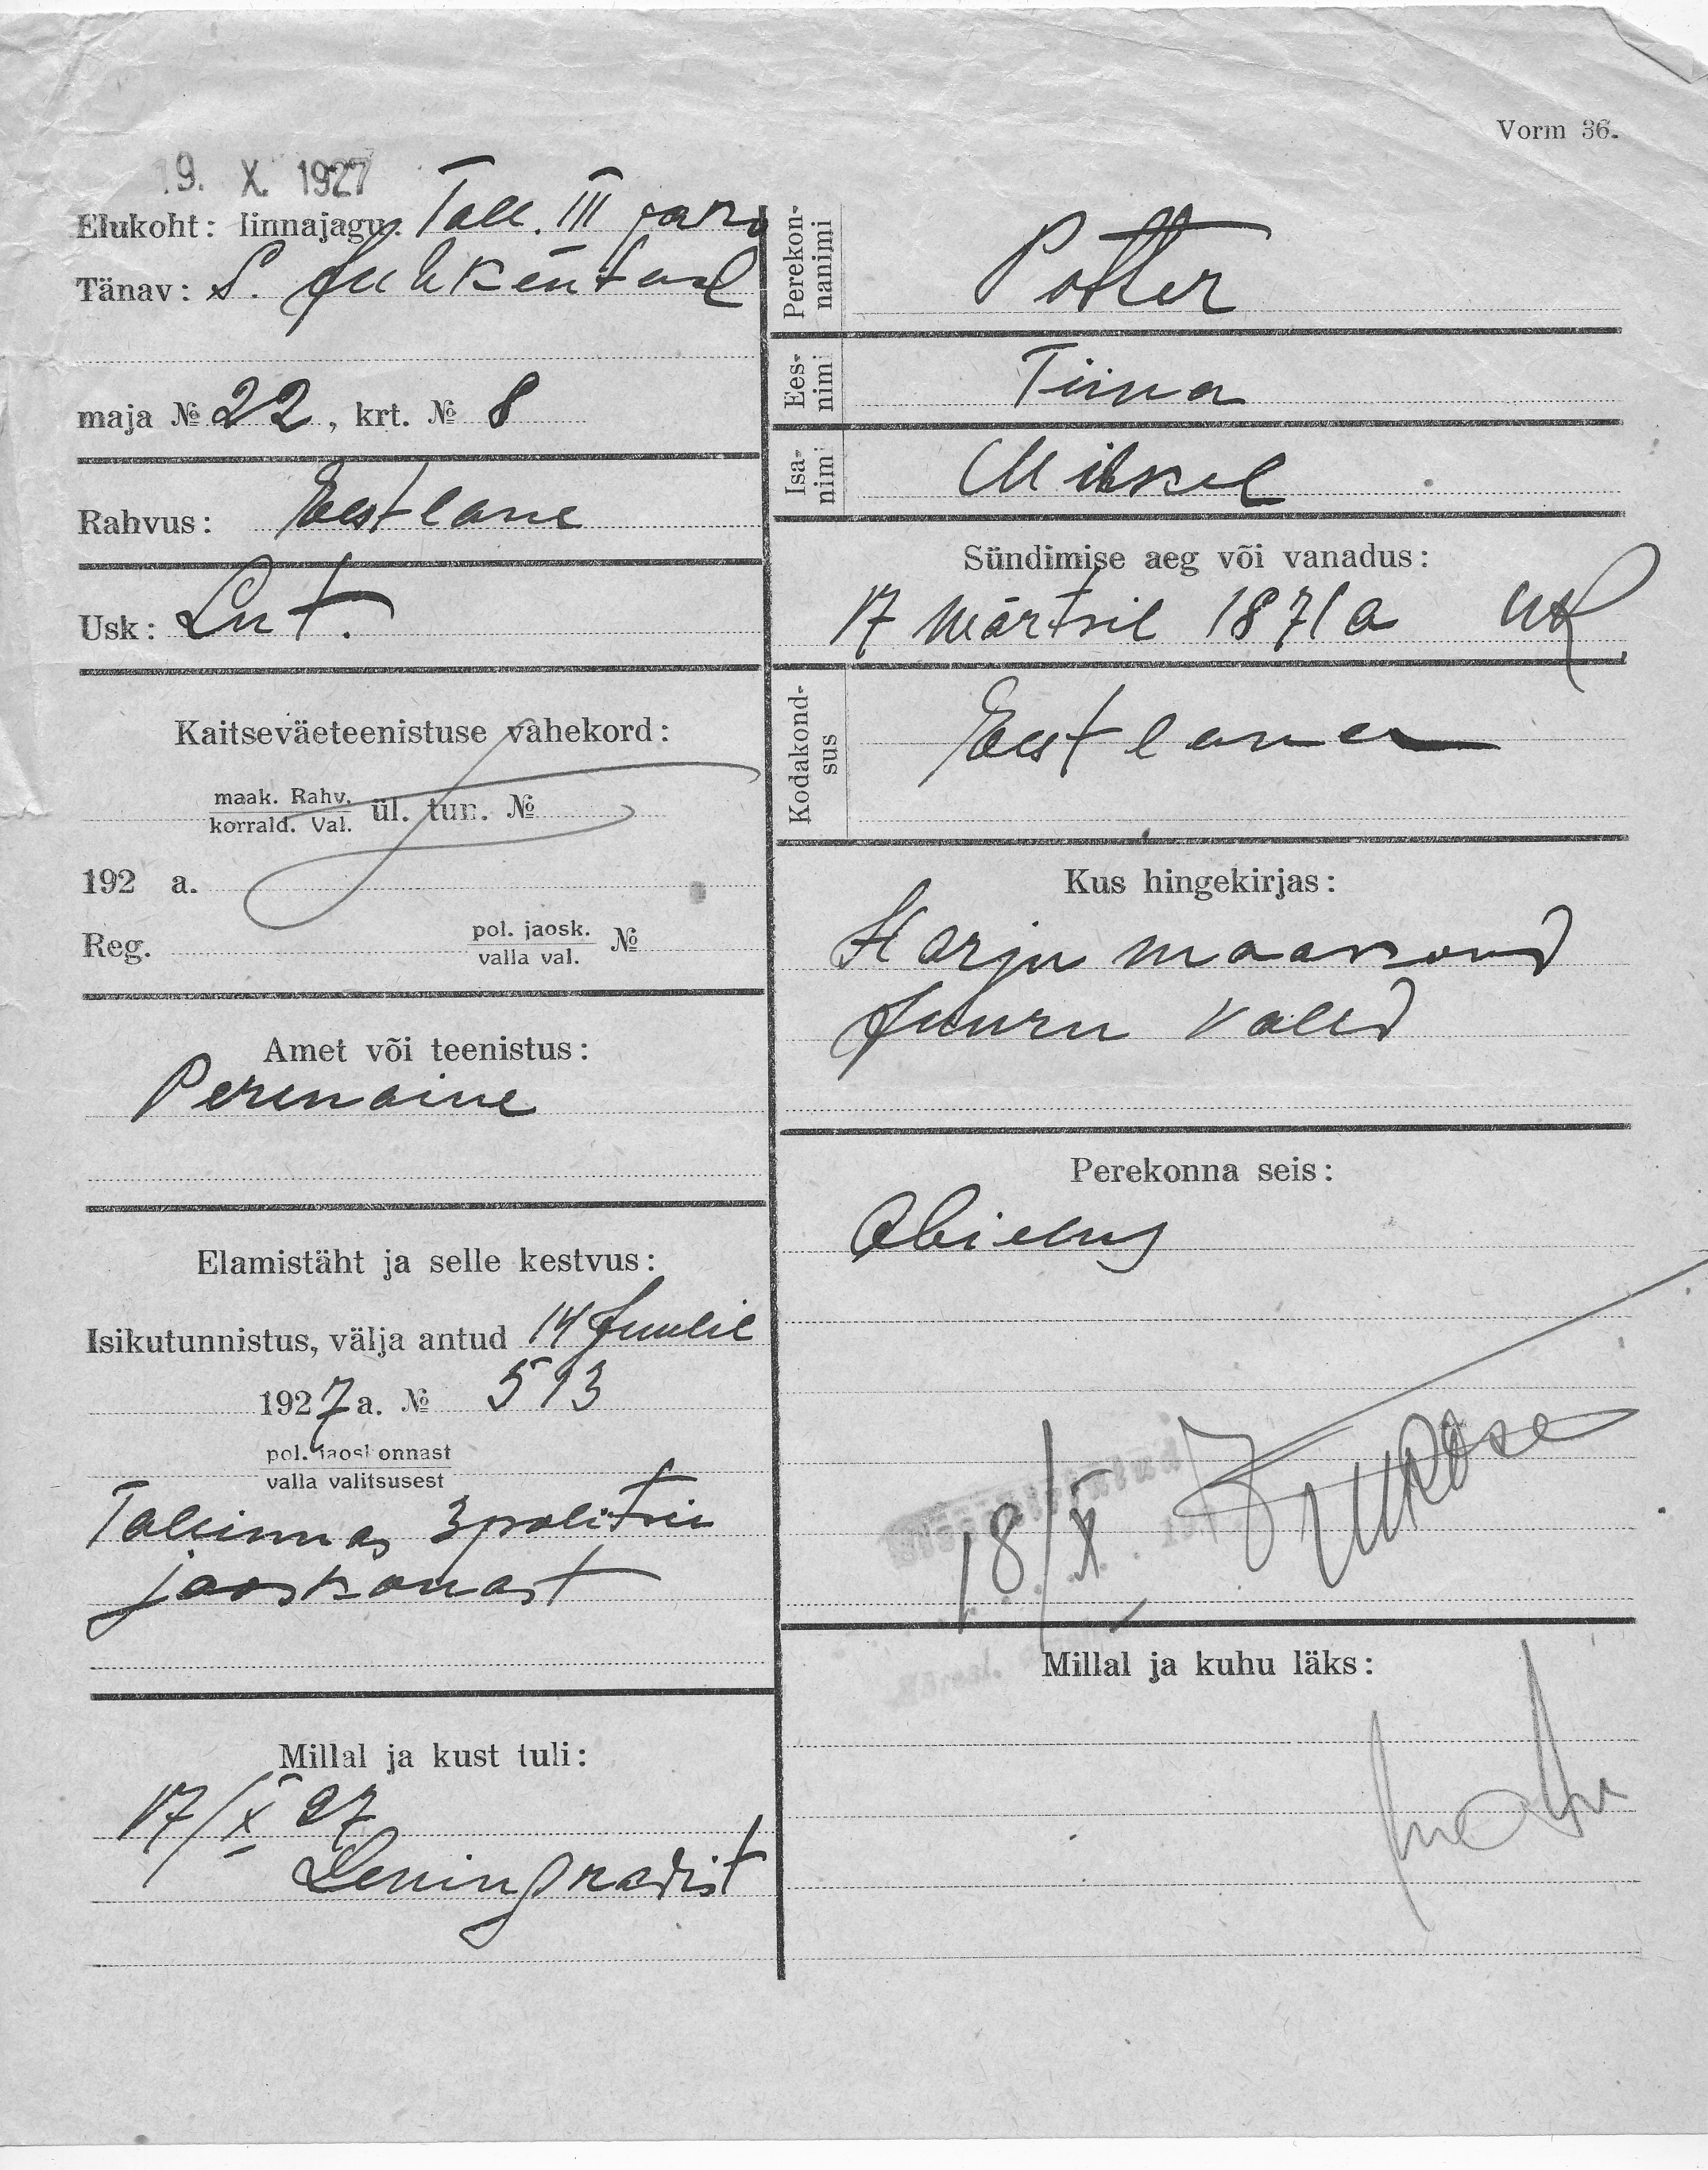 Vorm 36.
19. X. 1927
Elukoht: linnajagu. Tall. III jask
Tänav: S. Juhkentaal
maja № 22, krt. № 8
Rahvus: Eestlane
Usk: Lut.
Kaitseväeteenistuse vahekord:
maak. Rahv.
korrald. Val. ül. tun. №
192 a.
Reg. pol. jaosk.
valla val. №
Amet või teenistus:
Perenaine
Elamistäht ja selle kestvus:
Isikutunnistus, välja antud 14 Juulil
1927 a. № 513
pol. jaoskonnast
valla valitsusest
Tallinnas 3 politsei
jaoskonast
Millal ja kust tuli:
17/X 27
Leningradist
Perekon-
nanimi
Potter
Ees-
nimi
Tiina
Isa-
nimi
Mihkel
Sündimise aeg või vanadus:
17 Märtsil 1871 a
Kodakond-
sus
Eestlane
Kus hingekirjas:
Harju maakond
Juuru valld
Perekonna seis:
Abielus
18/X
Millal ja kuhu läks: